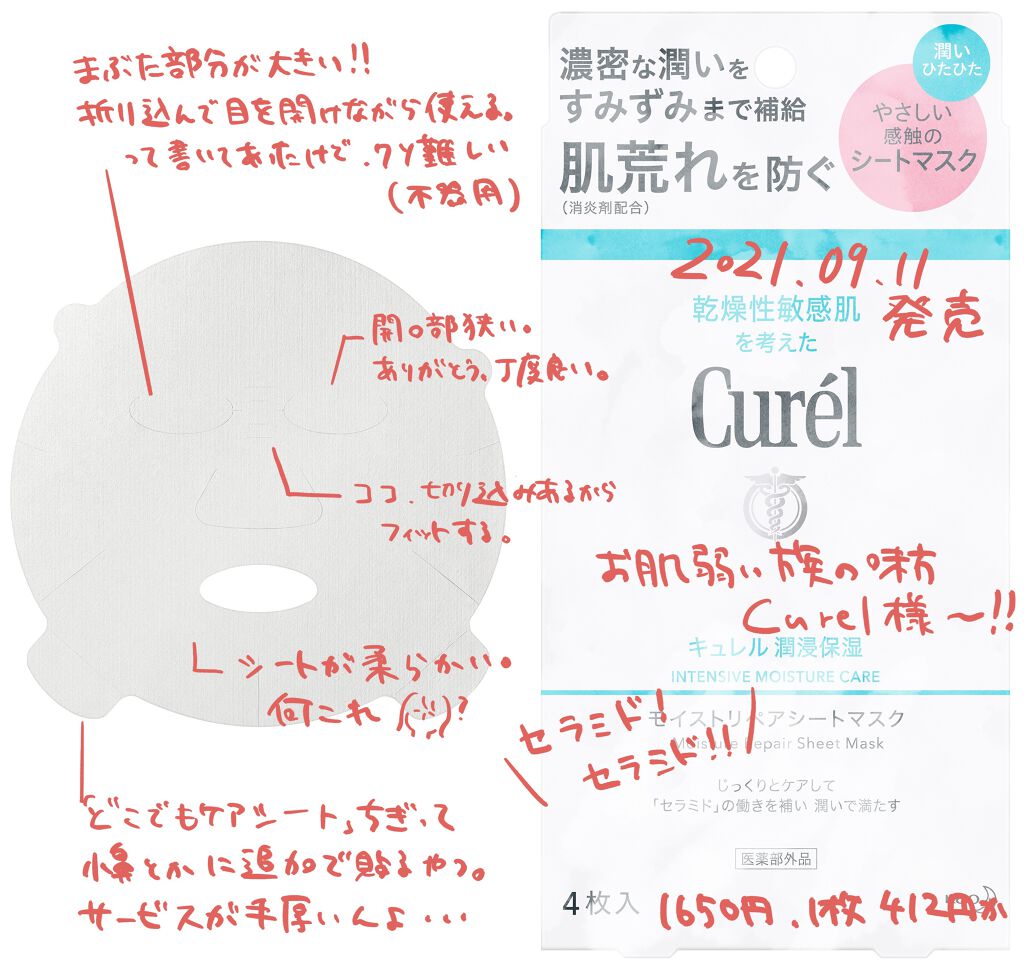 まぶた部分が大きい!!
折り込んで目を開けながら使える。
って書いてあったけど、クソ難しい
(不器用)
開口部狭い。
ありがとう、丁度良い。
ココ、切り込みあるから
フィットする。
シートが柔らかい。
何これ ?
「どこでもケアシート」ちぎって
小鼻とかに追加で貼るやつ。
サービスが手厚いんよ・・・
濃密な潤いを
すみずみまで補給
肌荒れを防ぐ
(消炎剤配合)
潤い
ひたひた
やさしい
感触の
シートマスク
2021.09.11
発売
乾燥性敏感肌
を考えた
Curél
お肌弱い族の味方
Curel様〜!!
キュレル 潤浸保湿
INTENSIVE MOISTURE CARE
セラミド!
セラミド!!
モイストリペアシートマスク
Moisture Repair Sheet Mask
じっくりとケアして
「セラミド」の働きを補い 潤いで満たす
医薬部外品
4枚入
1650円、1枚412円か